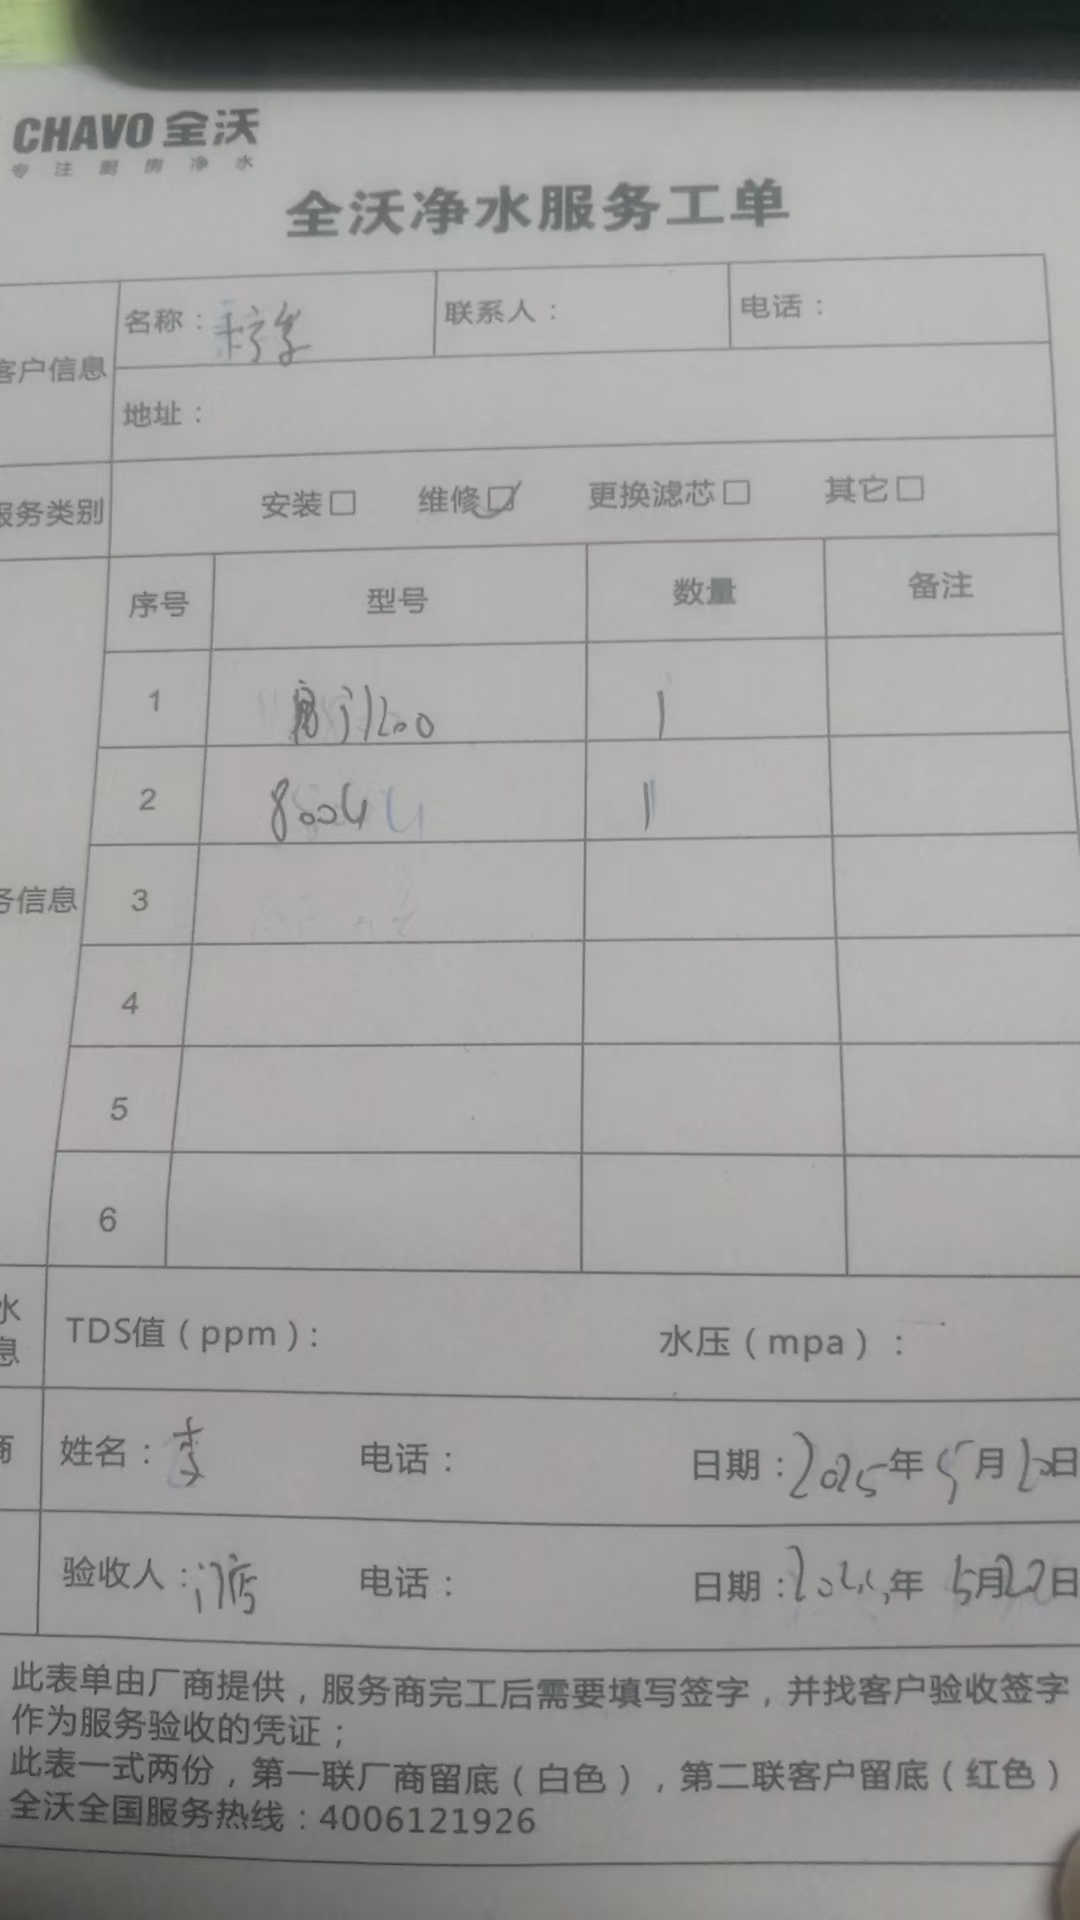 CHAVO 全沃
专注厨房净水
全沃净水服务工单
客户信息
名称： 联系人： 电话：
地址：
服务类别 安装□ 维修□✓ 更换滤芯□ 其它□
序号 型号 数量 备注
务信息
1 1200 1
2 8004 1
3
4
5
6
水
息
TDS值（ppm）： 水压（mpa）：
商 姓名：李 电话： 日期：2025年5月20日
验收人：门店 电话： 日期：年5月日
此表单由厂商提供，服务商完工后需要填写签字，并找客户验收签字
作为服务验收的凭证；
此表一式两份，第一联厂商留底（白色），第二联客户留底（红色）
全沃全国服务热线：4006121926